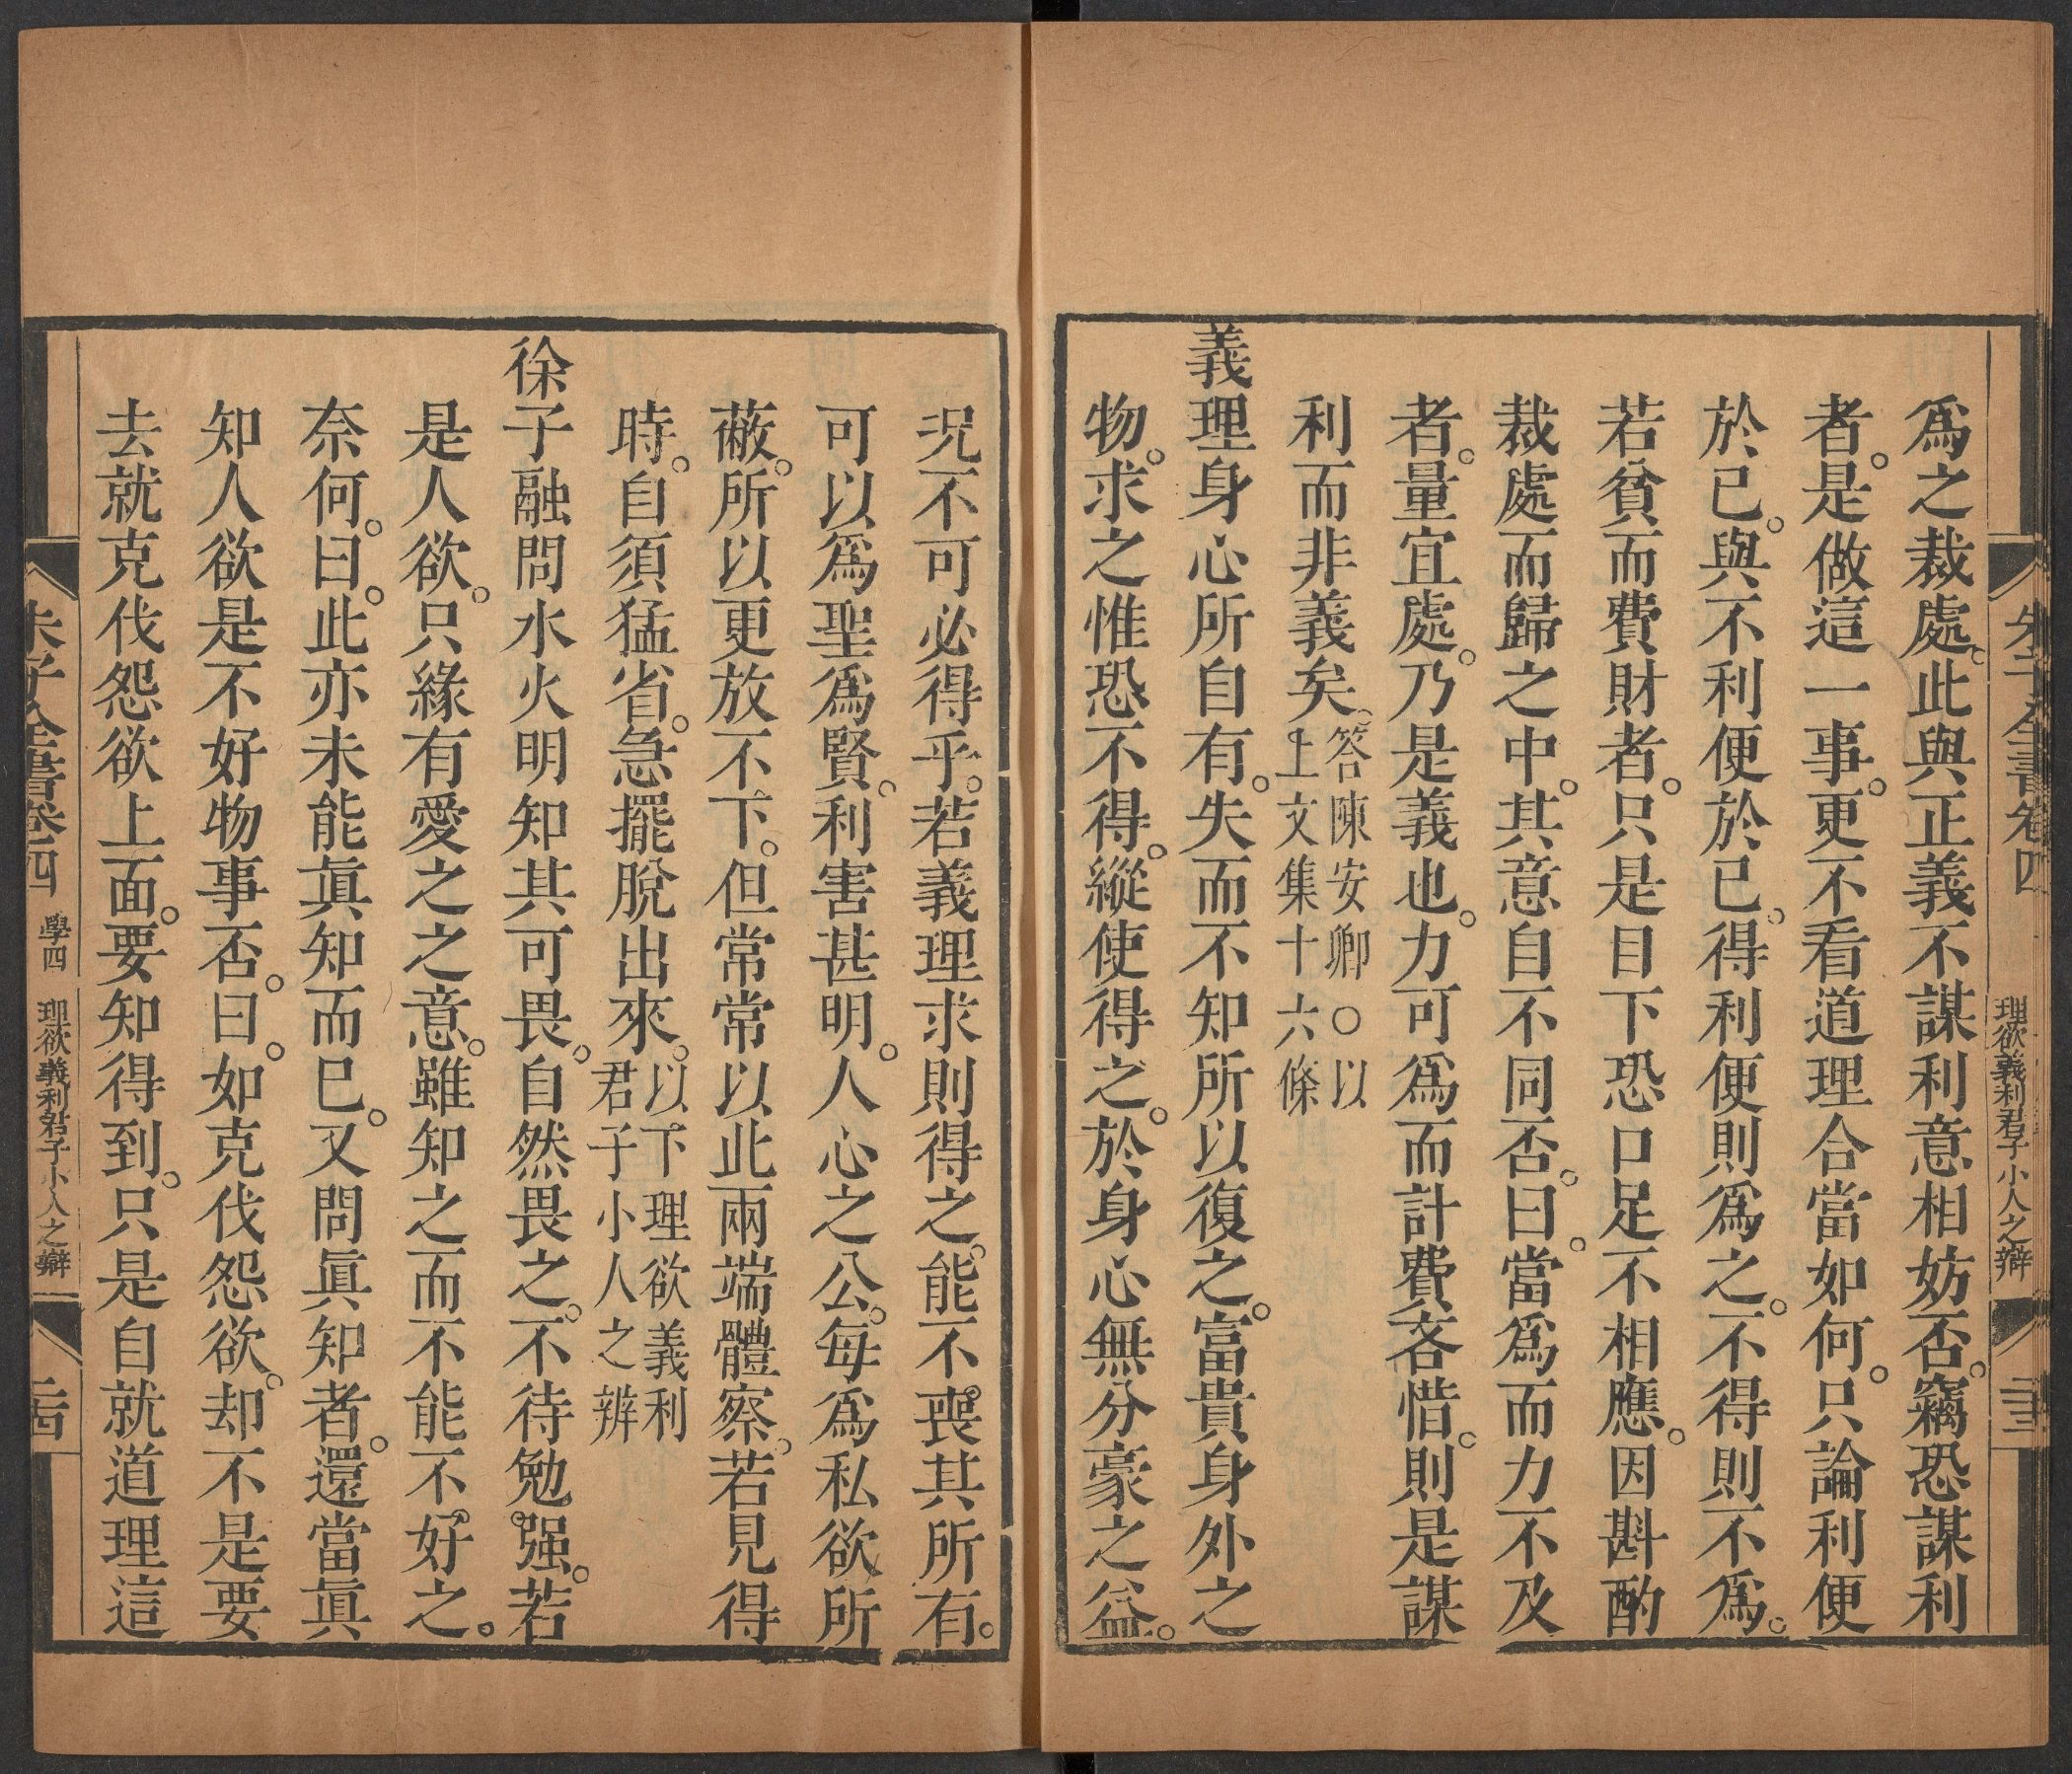 朱子全書卷四 理欲義利君子小人之辯 二十三
爲之裁處。此與正義不謀利意相妨否。竊恐謀利
者。是做這一事。更不看道理合當如何。只論利便
於已。與不利便於已。得利便則爲之。不得則不爲。
若貧而費財者。只是目下恐口足不相應。因斟酌
裁處而歸之中。其意自不同否。曰。當爲而力不及
者。量宜處。乃是義也。力可爲而計費吝惜。則是謀
利而非義矣。答陳安卿○以
上文集十六條
義理身心所自有。失而不知所以復之。富貴身外之
物。求之惟恐不得。縱使得之。於身心無分豪之益。
況不可必得乎。若義理求則得之。能不喪其所有。
可以爲聖爲賢。利害甚明。人心之公。每爲私欲所
蔽。所以更放不下。但常常以此兩端體察。若見得
時。自須猛省。急擺脫出來。以下理欲義利
君子小人之辨
徐子融問水火明知其可畏。自然畏之。不待勉强。若
是人欲。只緣有愛之之意。雖知之而不能不好之。
奈何。曰。此亦未能眞知而已。又問眞知者。還當眞
知人欲是不好物事否。曰。如克伐怨欲。却不是要
去就克伐怨欲上面。要知得到。只是自就道理這
朱子全書卷四 學四 理欲義利君子小人之辯 二十四